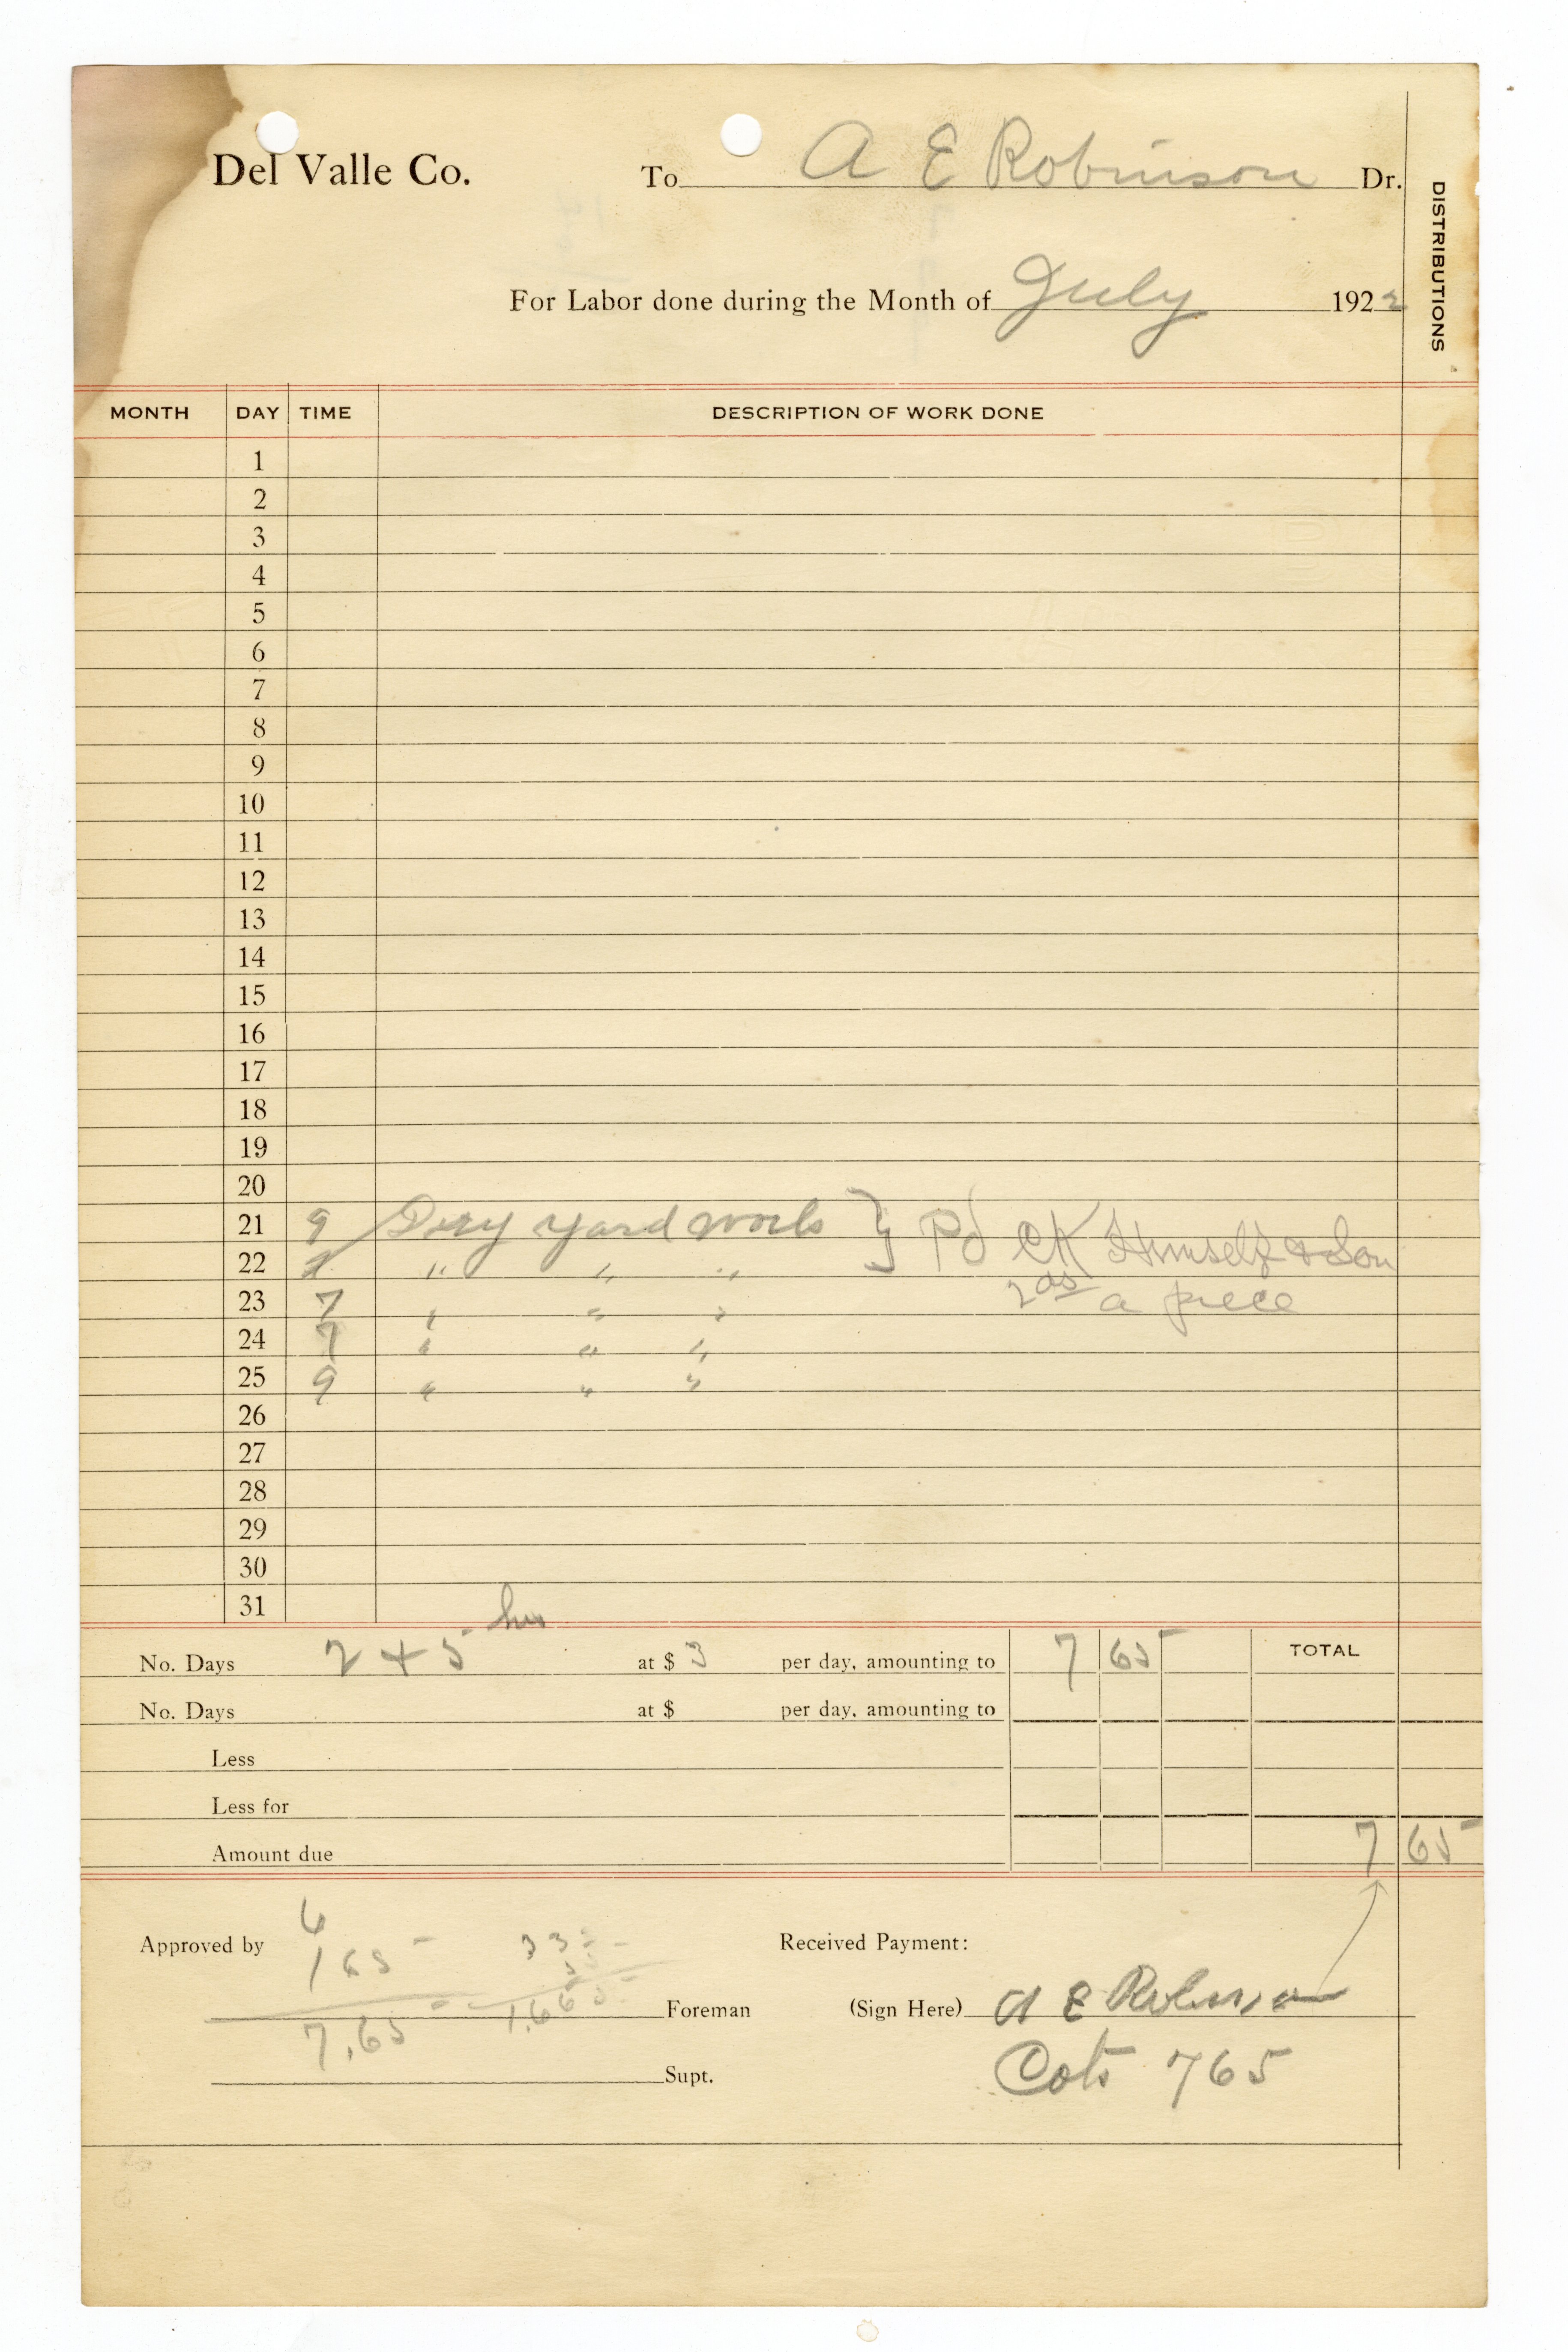 Del Valle Co. To A E Robinson Dr.
DISTRIBUTIONS
For Labor done during the Month of July 1922
MONTH DAY TIME DESCRIPTION OF WORK DONE
1
2
3
4
5
6
7
8
9
10
11
12
13
14
15
16
17
18
19
20
21 9 yard work } Pd CK Himself & Son
22 " " "
2 ds a piece
23 7 " " "
24 7 " " "
25 9 " " "
26
27
28
29
30
31
hrs
No. Days 2 + 5 at $ 3 per day, amounting to 7 65 TOTAL
No. Days at $ per day, amounting to
Less
Less for
Amount due 7 65
6
Approved by 165 33 Received Payment:
5
1.665
Foreman (Sign Here) A E Robinson
7.65
Supt. Cots 765